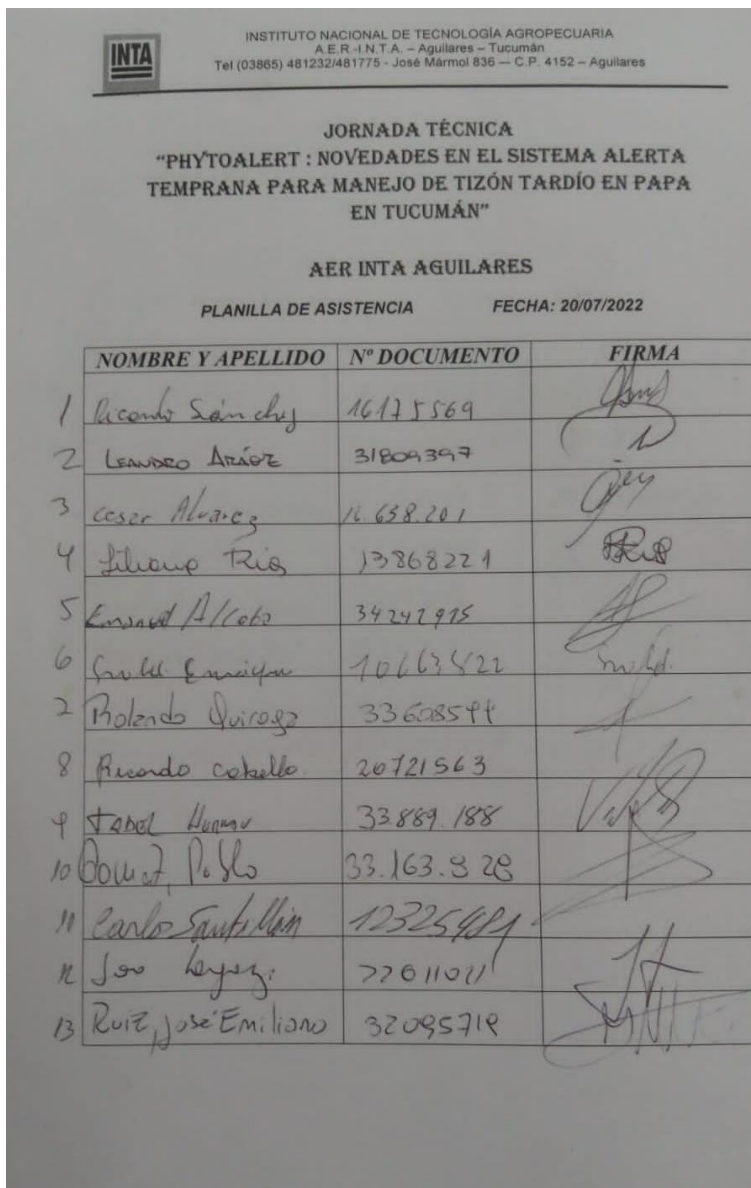 INTA
INSTITUTO NACIONAL DE TECNOLOGÍA AGROPECUARIA
A.E.R.-I.N.T.A. – Aguilares – Tucumán
Tel (03865) 481232/481775 - José Mármol 836 — C.P. 4152 – Aguilares
JORNADA TÉCNICA
“PHYTOALERT : NOVEDADES EN EL SISTEMA ALERTA
TEMPRANA PARA MANEJO DE TIZÓN TARDÍO EN PAPA
EN TUCUMÁN”
AER INTA AGUILARES
PLANILLA DE ASISTENCIA FECHA: 20/07/2022
NOMBRE Y APELLIDO Nº DOCUMENTO FIRMA
1 Ricardo Sánchez 16175569
2 LEANDRO ARÁOZ 31809397
3 Cesar Alvarez 16.658.201
4 Liliana Rios 13868221
5 34242975
6 Enrique
7 Rolando Quiroga
8 Ricardo cabello. 20721563
9 33.889.188
10 Pablo 33.163.928
11 Carlos Santillán
12
13 Ruiz, José Emiliano 32095719